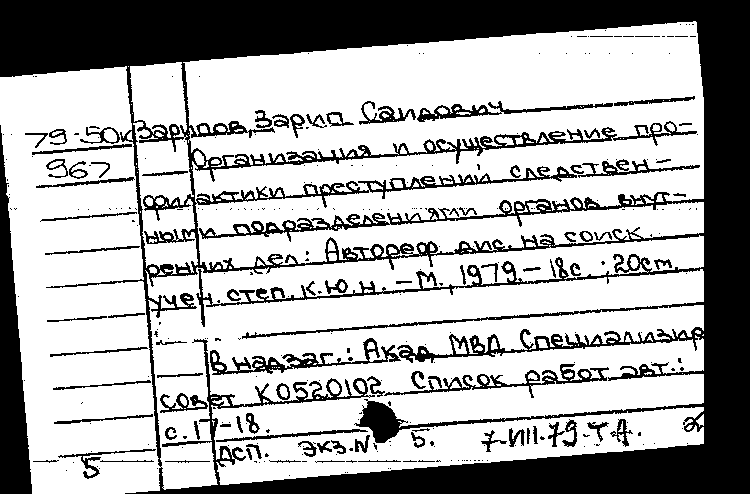 79:50к Зарипов, Зарип Саидович.
967 Организация и осуществление про-
филактики преступлений следствен-
ными подразделениями органов внут-
ренних дел: Автореф. дис. на соиск.
учен. степ. к.ю.н. – М., 1979. – 18с. ; 20см.
В надзаг.: Акад МВД Специализир
совет К0520102 Список работ авт.:
с. 17-18.
ДСП. экз.N 5. 7-VIII-79. Т.А.
5